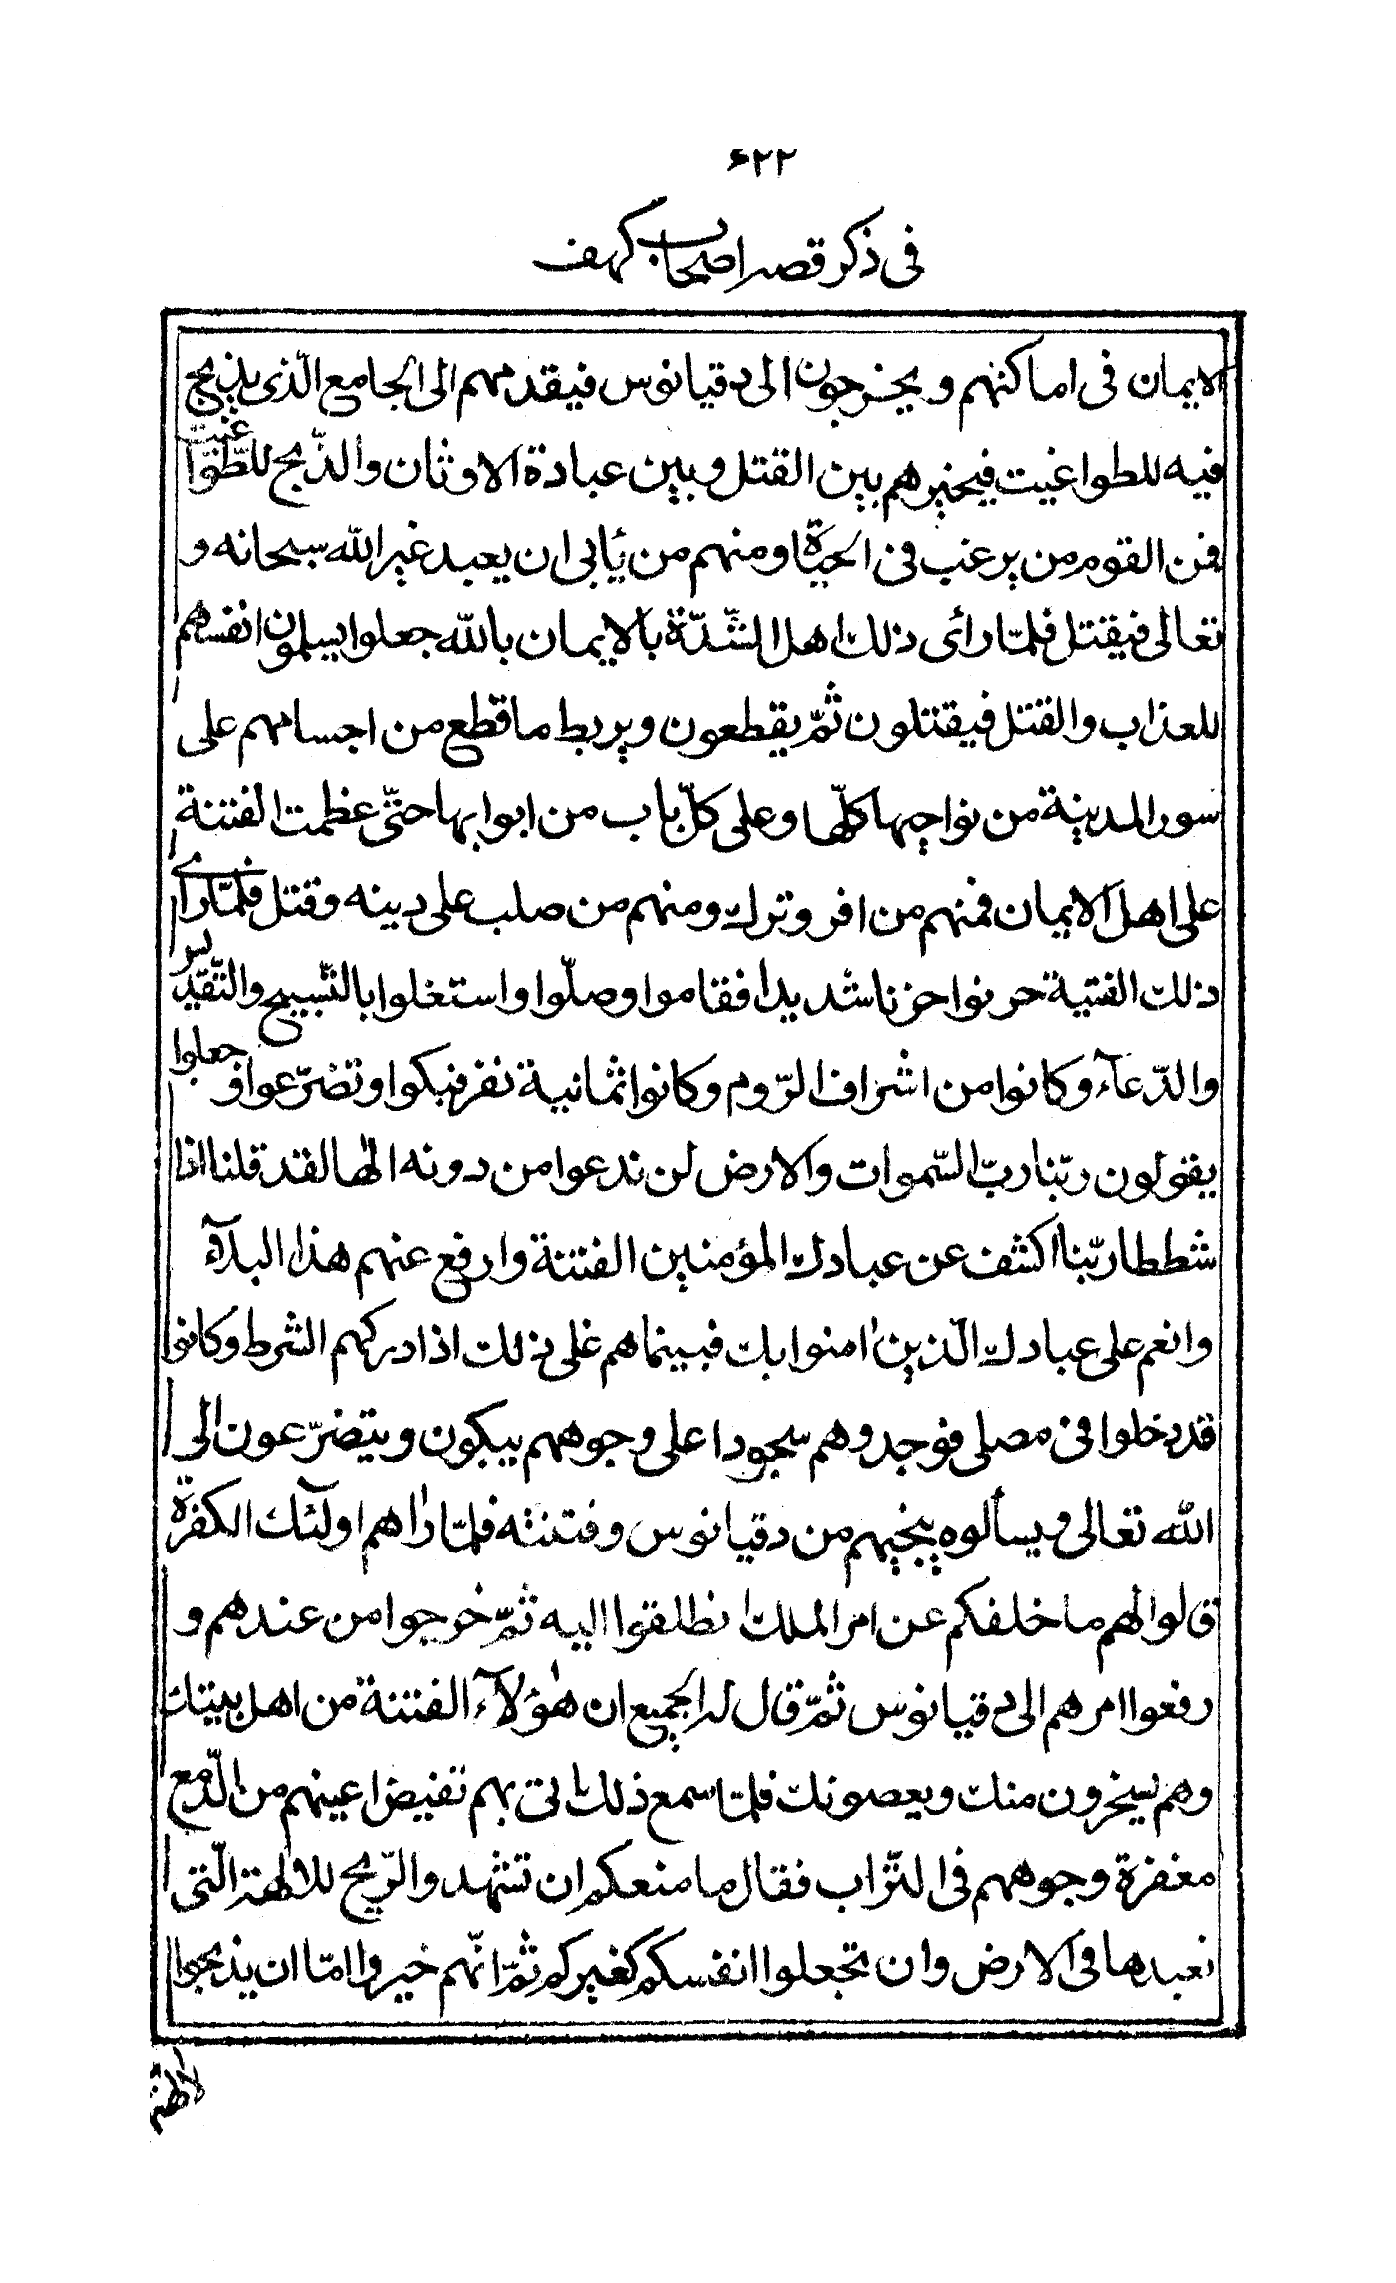 ۶۲۲
فی ذکر قصه اصحاب کهف
الایمان فی اماکنهم ویخرجون الی دقیانوس فیقدمهم الی الجامع الّذی یذبح
فیه للطواغیت فیخیرهم بین القتل وبین عبادة الاوثان والذّبح للطّواغیت
فمن القوم من یرغب فی الحیٰوة ومنهم من یأبی ان یعبد غیر الله سبحانه و
تعالی فیقتل فلمّا رأی ذلك اهل الشّدّة بالایمان بالله جعلوا یسلمون انفسهم
للعذاب والقتل فیقتلون ثمّ یقطعون ویربط ما قطع من اجسامهم علی
سور المدینة من نواحیها کلّها وعلی کلّ باب من ابوابها حتّی عظمت الفتنة
علی اهل الایمان فمنهم من اقر وترك ومنهم من صلب علی دینه وقتل فلمّا رای
ذلك الفتیة حزنوا حزنا شدیدا فقاموا وصلّوا واستغلوا بالتّسبیح والتّقدیس
والدّعآء وکانوا من اشراف الرّوم وکانوا ثمانیة نفر فبکوا وتضرّعوا وجعلوا
یقولون ربّنا ربّ السّموات والارض لن ندعوا من دونه الٰها لقد قلنا اذا
شططا ربّنا اکشف عن عبادك المؤمنین الفتنة وارفع عنهم هذا البلآء
وانعم علی عبادك الّذین اٰمنوا بك فبینما هم علی ذلك اذا درکهم الشرط وکانوا
قد دخلوا فی مصلی فوجدوهم سجودا علی وجوههم یبکون ویتضرّعون الی
الله تعالی ویسألوه ینجیهم من دقیانوس وفتنته فلمّا راٰهم اولٓئك الکفرة
قالوا لهم ما خلفکم عن امر الملك انطلقوا الیه ثمّ خرجوا من عندهم و
رفعوا امرهم الی دقیانوس ثمّ قال له الجمیع ان هٰؤلآء الفتنة من اهل بیتك
وهم یسخرون منك ویعصونك فلمّا سمع ذلك اتی بهم تفیض اعینهم من الدّمع
مغفرة وجوههم فی التّراب فقال ما منعکم ان تشهد والرّیح للالٰهة الّتی
نعبدها فی الارض وان تجعلوا انفسکم کغیرکم ثمّ انّهم خیروا امّا ان یذبحوا
لالٰهتنا